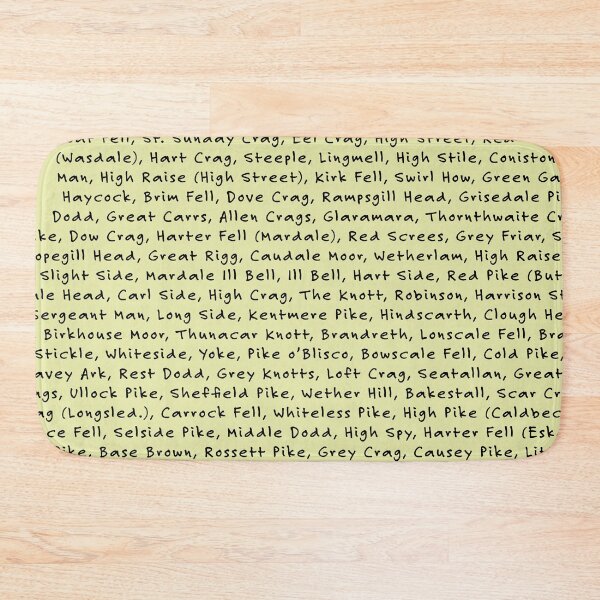 Fell, St. Sunday Crag, Eel Crag, High Street, Red
(Wasdale), Hart Crag, Steeple, Lingmell, High Stile, Coniston
Man, High Raise (High Street), Kirk Fell, Swirl How, Green Ga
Haycock, Brim Fell, Dove Crag, Rampsgill Head, Grisedale Pi
Dodd, Great Carrs, Allen Crags, Glaramara, Thornthwaite Cr
ke, Dow Crag, Harter Fell (Mardale), Red Screes, Grey Friar, S
opegill Head, Great Rigg, Caudale Moor, Wetherlam, High Raise
Slight Side, Mardale Ill Bell, Ill Bell, Hart Side, Red Pike (But
le Head, Carl Side, High Crag, The Knott, Robinson, Harrison St
Sergeant Man, Long Side, Kentmere Pike, Hindscarth, Clough He
Birkhouse Moor, Thunacar Knott, Brandreth, Lonscale Fell, Bra
Stickle, Whiteside, Yoke, Pike o'Blisco, Bowscale Fell, Cold Pike,
avey Ark, Rest Dodd, Grey Knotts, Loft Crag, Seatallan, Great
ags, Ullock Pike, Sheffield Pike, Wether Hill, Bakestall, Scar Cr
ag (Longsled.), Carrock Fell, Whiteless Pike, High Pike (Caldbec
ce Fell, Selside Pike, Middle Dodd, High Spy, Harter Fell (Esk
Pike, Base Brown, Rossett Pike, Grey Crag, Causey Pike, Lit